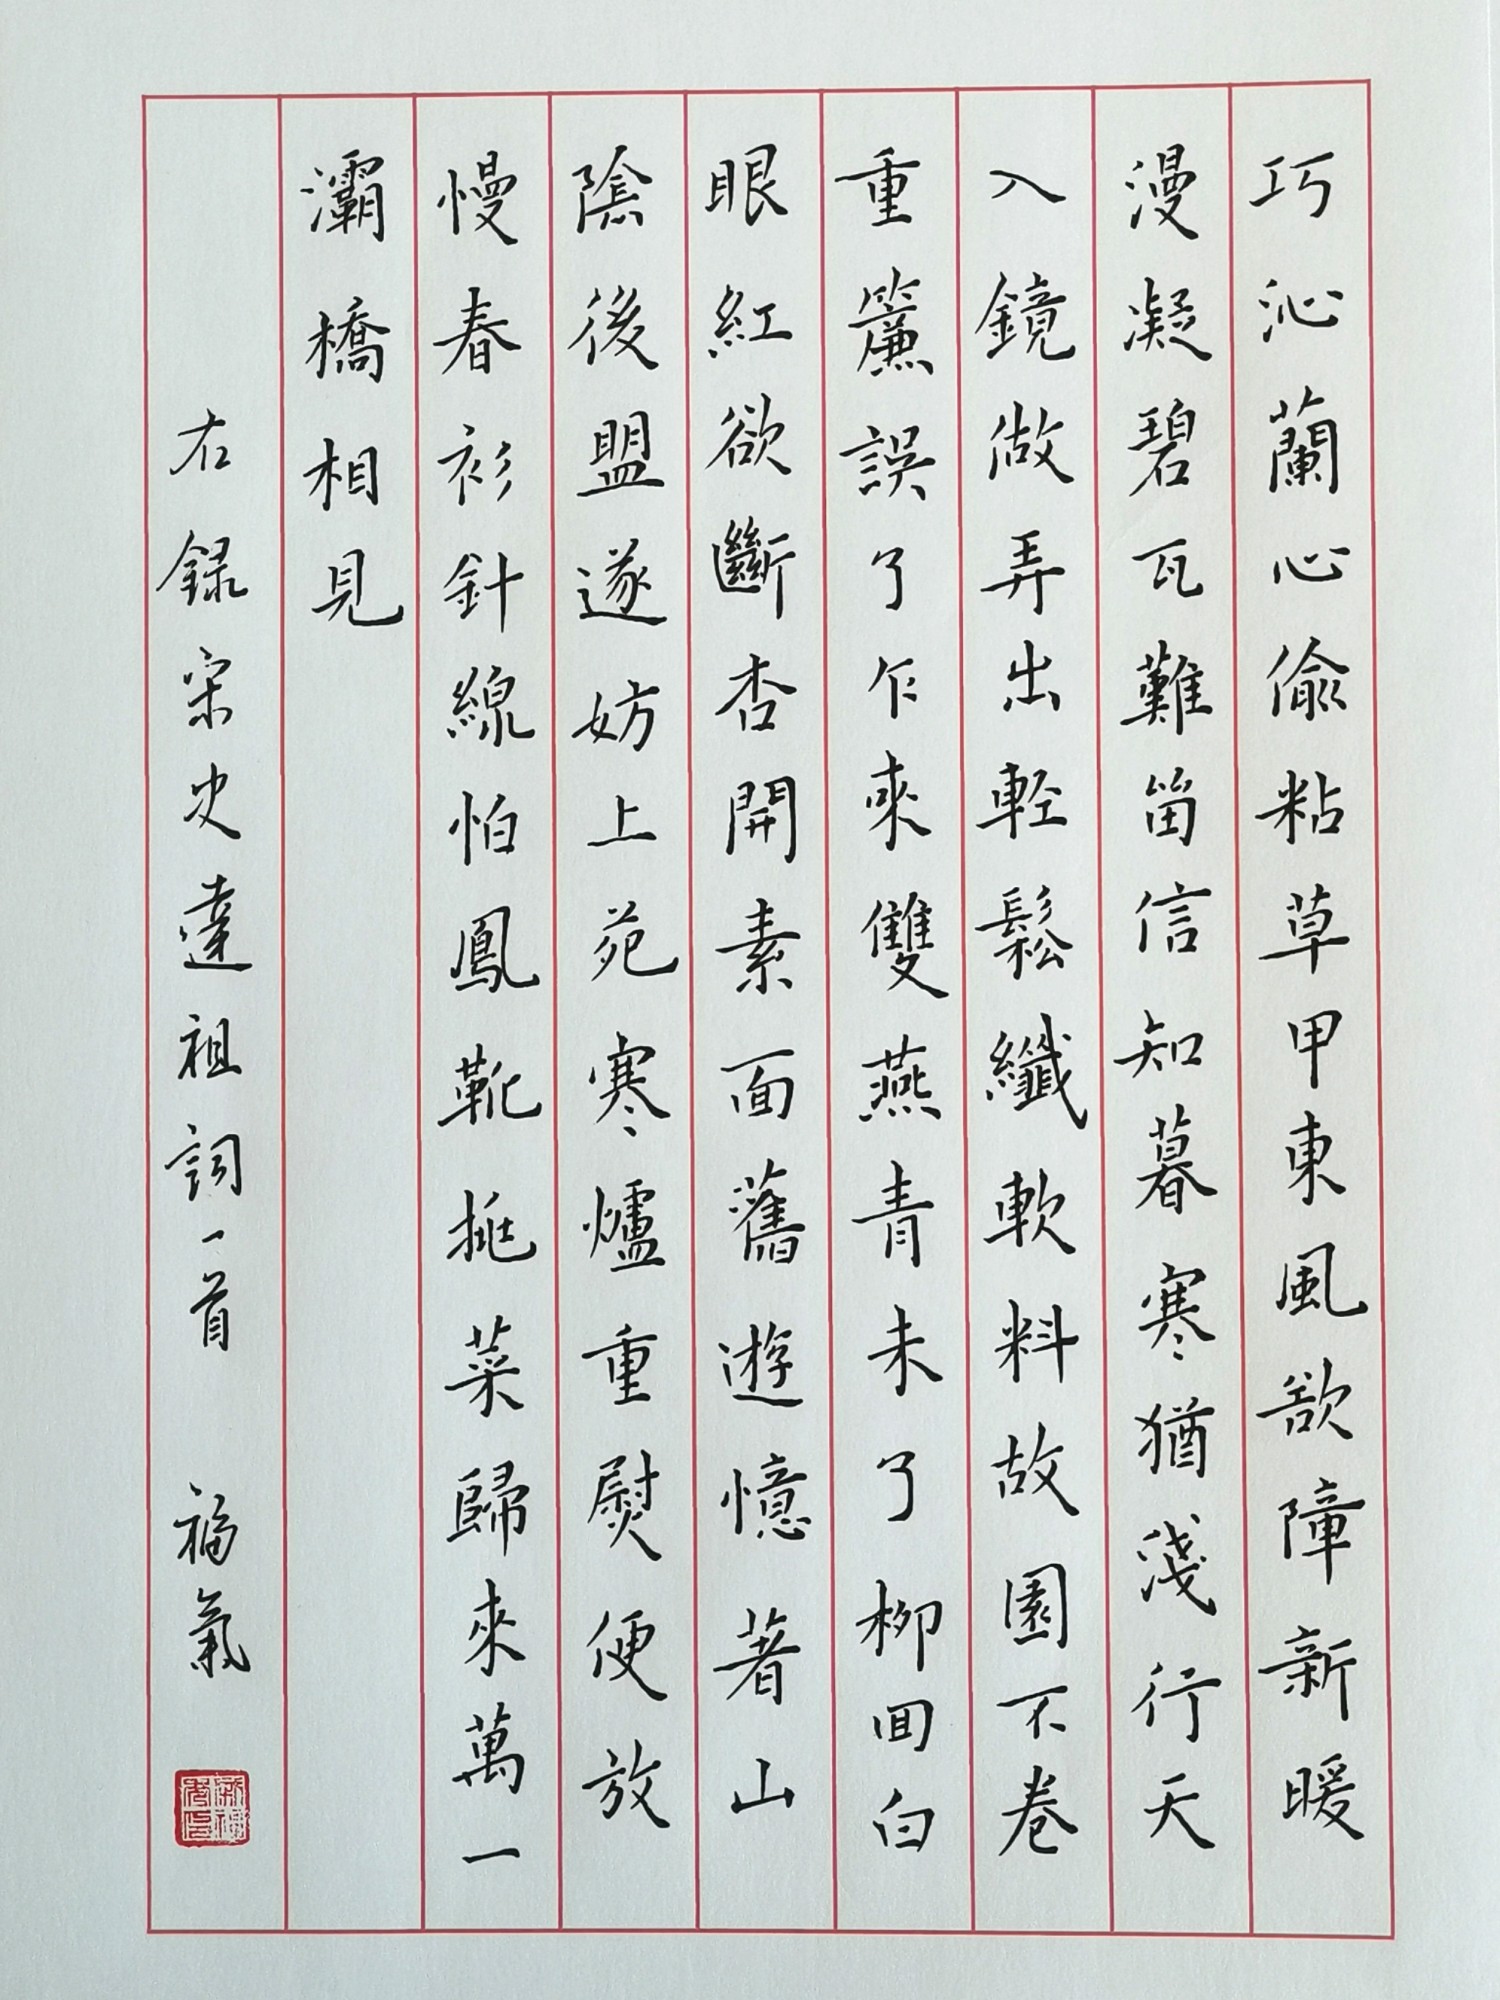 巧沁蘭心偷粘草甲東風欲障新暖
漫凝碧瓦難留信知暮寒猶淺行天
入鏡做弄出輕鬆纖軟料故園不卷
重簾誤了乍來雙燕青未了柳回白
眼紅欲斷杏開素面舊遊憶著山
陰後盟遂妨上苑寒爐重熨便放
慢春衫針線怕鳳靴挑菜歸來萬一
灞橋相見
右録宋史達祖詞一首 福氣